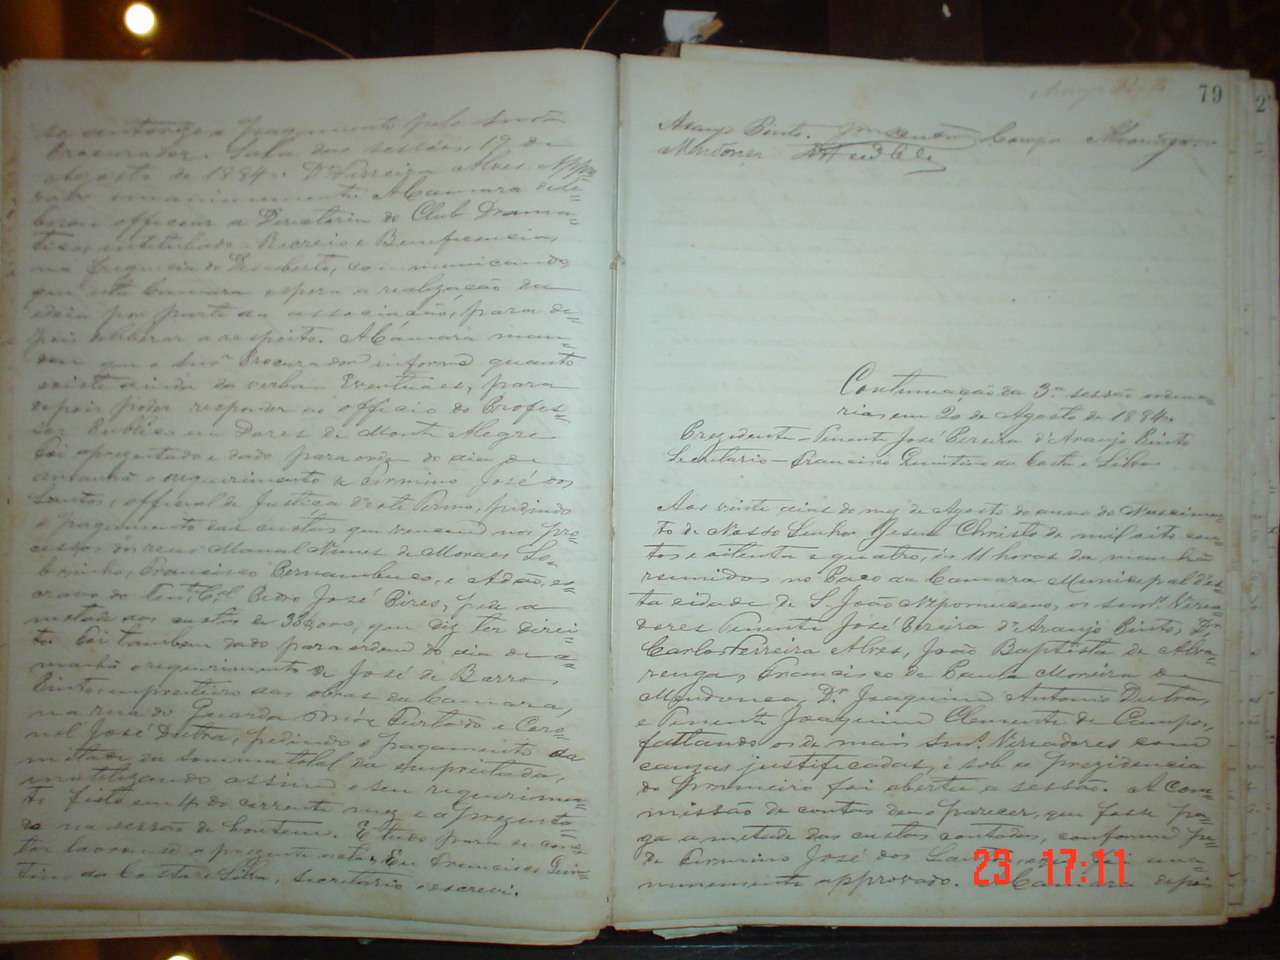 se autorize o pagamento pelo Snr.
Procurador. Sala das sessões, 19 de
Agosto de 1884. Dr. Ferreira Alves. Appro=
vado unanimemente. A Camara deli=
berou officiar a Directoria do Club Drama=
tico, intitulado Recreio e Beneficencia,
na Freguezia do Descoberto, communicando
que esta Camara espera a realização da
ideia por parte da associação, para de=
pois deliberar a respeito. A Câmara man=
dou que o Snr. Procurador informe quanto
existe ainda da verba Eventuaes, para
depois poder responder ao officio do Profes=
sor Publico em Dores de Monte Alegre
Foi apresentado e dado para ordem do dia de
amanhã o requerimento de Firmino José dos
Santos, official de Justiça deste Termo, pedindo
o pagamento das custas que venceu nos pro=
cessos dos reus Manoel Nunes de Moraes So=
brinho, Francisco Pernambuco, e Adão, es=
cravo do Tent. Cel. Pedro José Pires, pede a
metade das custas de 38$000, que diz ter direi=
to. Foi tambem dado para ordem do dia de a=
manhã o requerimento de José de Barros
Pinto, impreiteiro das obras da Camara,
na rua do Guarda Mór Furtado e Coro=
nel José Dutra, pedindo o pagamento da
metade da somma total da empreitada,
inutilizando assim o seu requerimen=
to feito em 14 do corrente mez e apresenta=
do na sessão de hontem. E tudo para se cons=
tar lavrou-se a presente acta. Eu Francisco Quin=
tino da Costa e Silva, Secretario o escrevi.
79
Araujo Pinto. Campos Alvarenga.
Mendonça
Continuação da 3.ª sessão ordina=
ria, em 20 de Agosto de 1884.
Prezidente – Tenente José Pereira d'Araujo Pinto
Secretario – Francisco Quintino da Costa e Silva
Aos vinte dias do mez de Agosto do anno do Nascimen=
to de Nosso Senhor Jesus Christo de mil oito cen=
tos e oitenta e quatro, ás 11 horas da manhã
reunidos no Paço da Camara Municipal d'es=
ta cidade de S. João Nepomuceno, os senr.s Verea=
dores Tenente José Pereira d'Araujo Pinto, Dr.
Carlos Ferreira Alves, João Baptista de Alva=
renga, Francisco de Paula Moreira de
Mendonça, Dr. Joaquim Antonio Dutra,
e Tenente Joaquim Clemente de Campos,
faltando os de mais Snr.s Vereadores com
cauzas justificadas, e sob a prezidencia
do primeiro foi aberta a sessão. A Com=
missão de contas deu parecer, que fosse pa=
ga a metade das custas contadas, conforme pe=
de Firmino José dos Santos, una=
nimemente approvado. A Camara depois
23 17:11